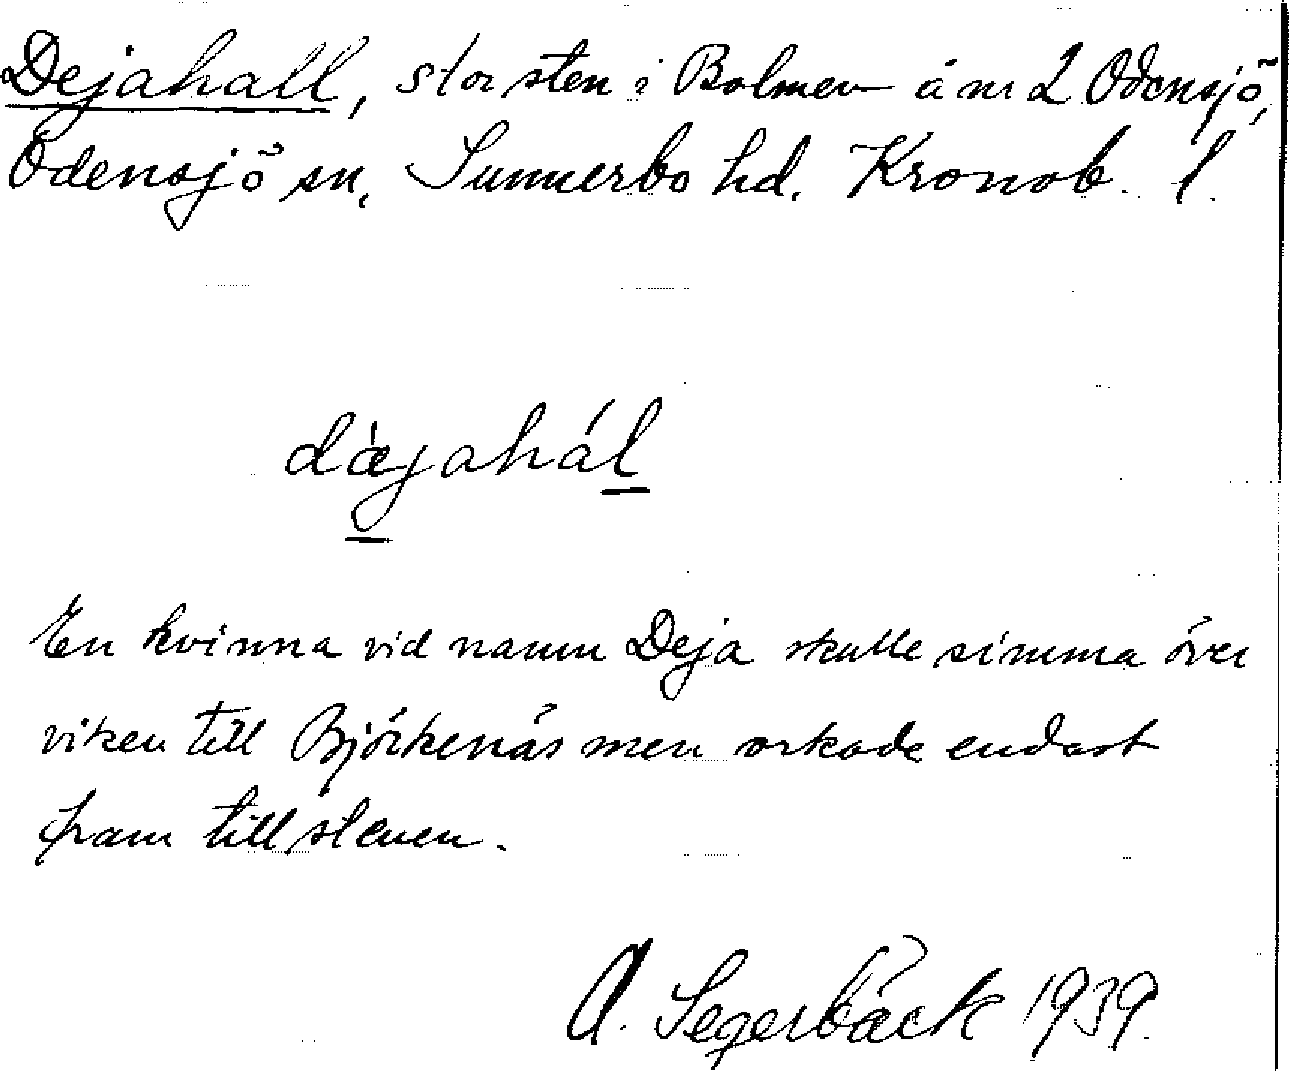 Dejahall, stor sten i Bolmen å nr 2 Odensjö,
Odensjö sn, Sunnerbo hd. Kronob. l.
dæ̀jahál
En kvinna vid namn Deja skulle simma över
viken till Björkenäs men orkade endast
fram till stenen.
A. Segerbäck 1939.